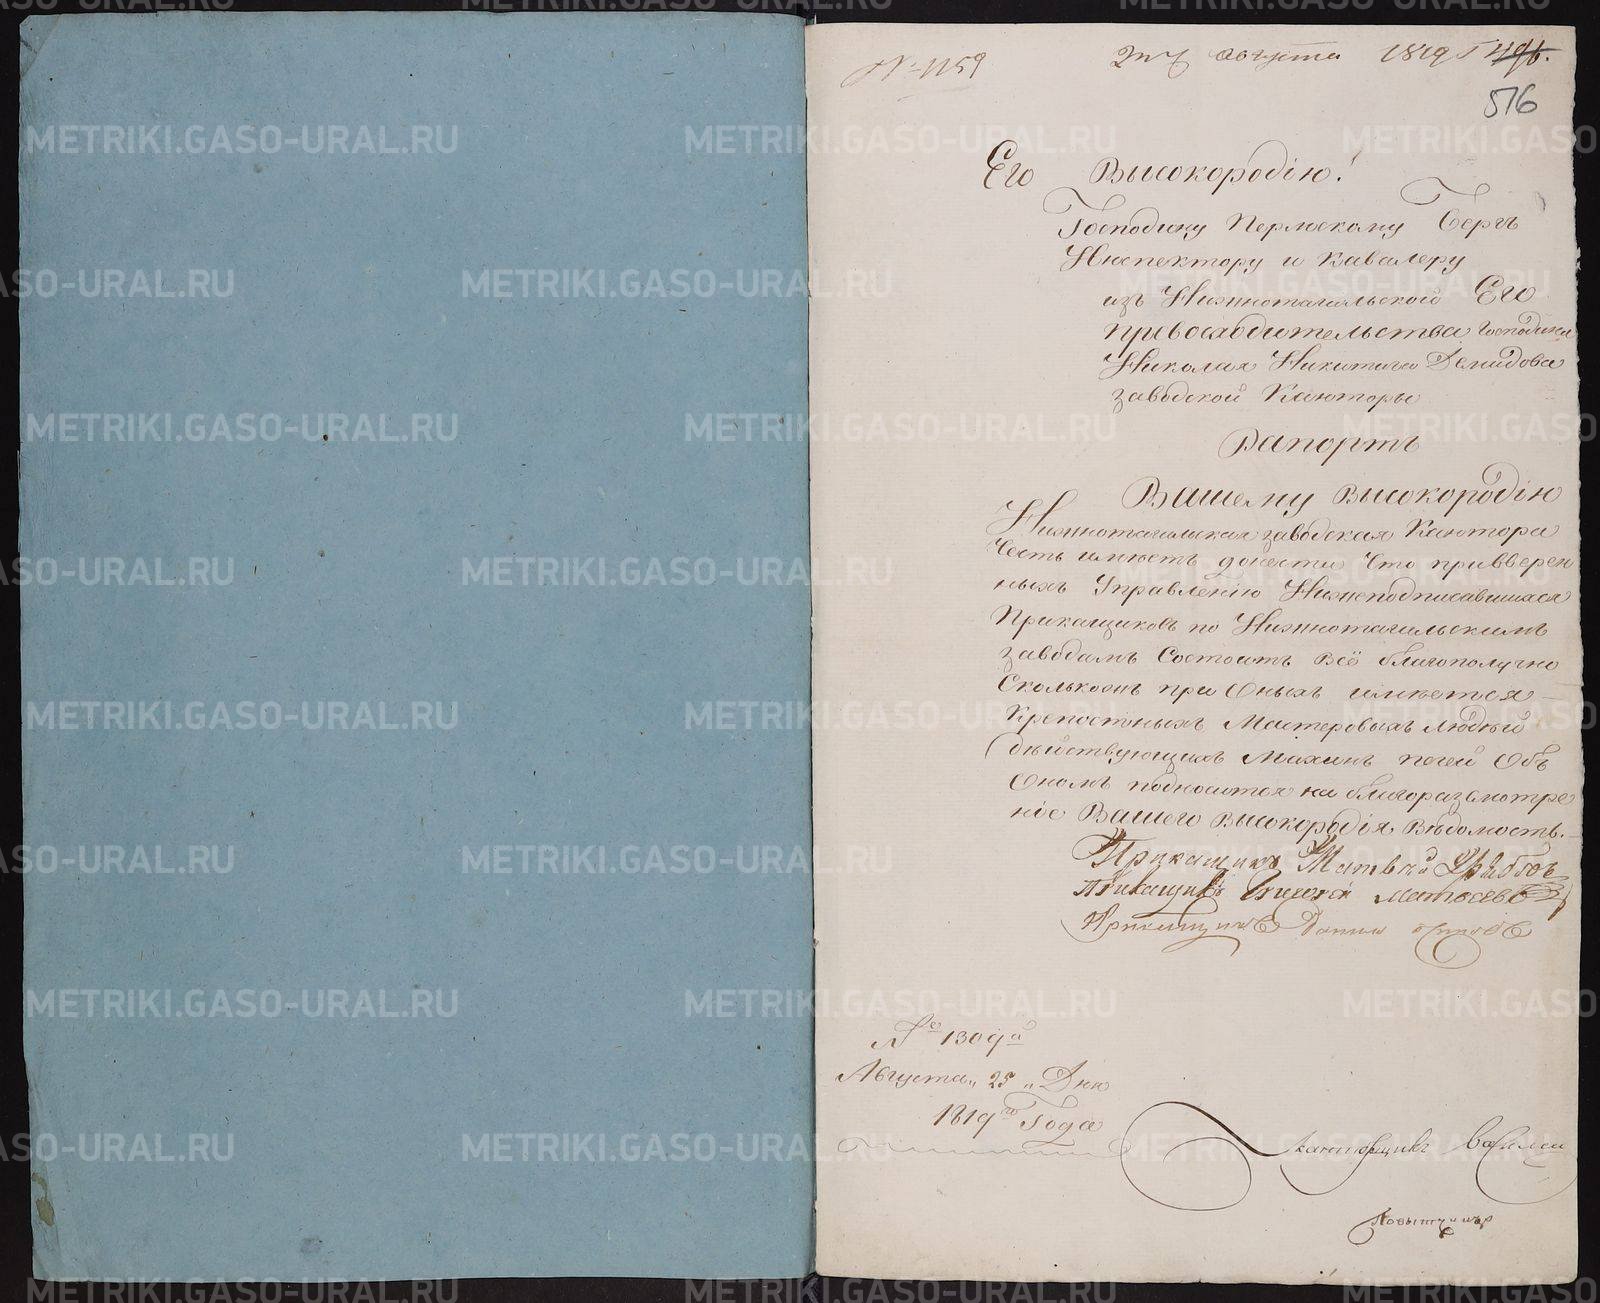 № 1159
августа 1819
516
Его Высокородію!
Господину Пермскому Бергъ
Инспектору и Кавалеру
изъ Нижнотагильской Его
превосходительства Господина
Николая Никитича Демидова
заводской Канторы
Рапортъ
Вашему Высокородію
Нижнотагильская заводская Кантора
Честь имѣетъ донести Что привверен
ныхъ Управленію Нижеподписавшихся
Прикащиковъ по Нижнотагильскимъ
заводамъ Состоитъ Всё благополучно
Сколькожъ при Оныхъ имѣется
Крепостныхъ Мастеровыхъ людей
действующихъ Махинъ печей Объ
Ономъ подносится на благоразсмотре
ніе Вашего Высокородія Вѣдомость.
Прикащикъ Матвей
Прикащикъ
Прикащикъ Данило
№ 1309й
Августа „ 25 „ Дня
1819го Года
Канторщикъ
Повытчикъ
METRIKI.GASO-URAL.RU